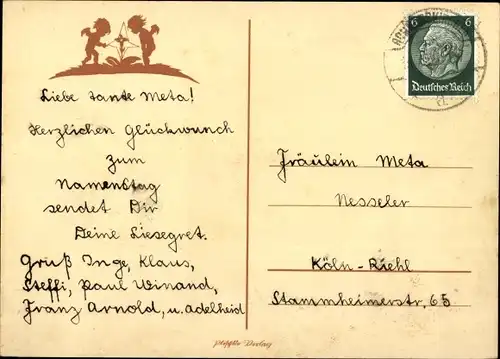 Liebe tante Meta!
Herzlichen Glückwunch
zum
Namenstag
sendet Dir
Deine Liesegret.
Gruß Inge, Klaus,
Steffi, Paul Winand,
Franz Arnold, u. Adelheid
6 6
Deutsches Reich
Fräulein Meta
Nesseler
Köln-Riehl
Stammheimerstr, 65
Verlag